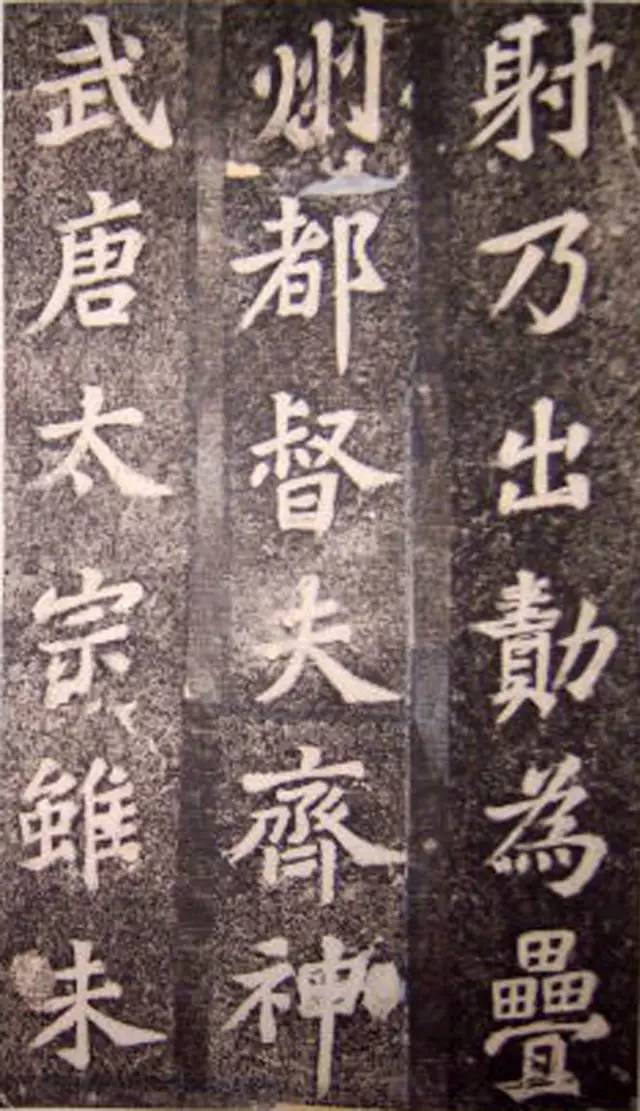 射乃出勣為疊
州都督夫齊神
武唐太宗雖未